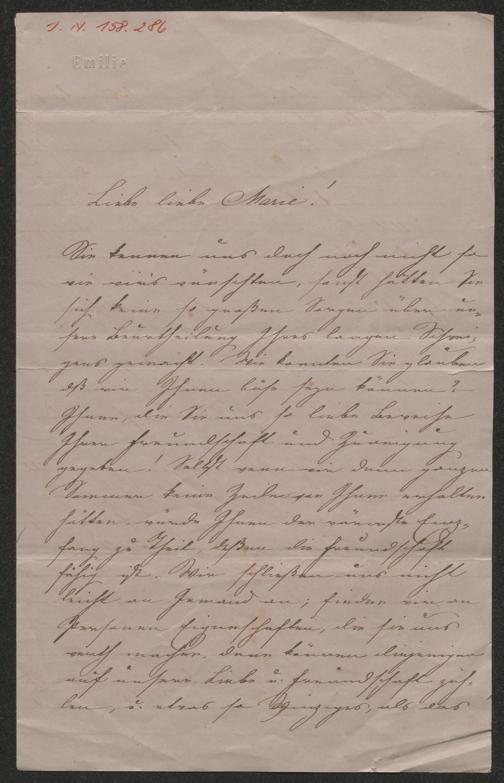 I. N. 158.286
Emilie
Liebe liebe Marie!
Sie kennen uns doch noch nicht so
wie wir's wünschten, sonst hätten Sie
sich keine so großen Sorgen über un-
sere Beurtheilung Ihres langen Schwei-
gens gemacht. Wie konnten Sie glauben
dß wir Ihnen böse seyn können?
Ihnen, die Sie uns so liebe Beweise
Ihrer Freundschaft und Zuneigung
gegeben! Selbst wenn wir den ganzen
Sommer keine Zeilen von Ihnen erhalten
hätten, würde Ihnen der wärmste Emp-
fang zu Theil, deßen die Freundschaft
fähig ist. Wir schließen uns nicht
leicht an Jemand an; finden wir an
Personen Eigenschaften, die sie uns
werth machen, dann können diejenigen
auf unsere Liebe u. Freundschaft zäh-
len, u. etwas so Winziges, als das